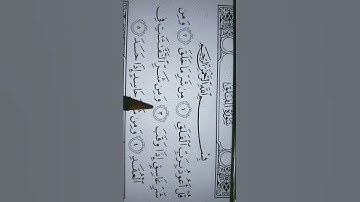 سُورَةُ الْفَلَقِ
بِسْمِ اللَّهِ الرَّحْمَٰنِ الرَّحِيمِ
قُلْ أَعُوذُ بِرَبِّ الْفَلَقِ ١ مِن شَرِّ مَا خَلَقَ ٢ وَمِن
شَرِّ غَاسِقٍ إِذَا وَقَبَ ٣ وَمِن شَرِّ النَّفَّٰثَٰتِ فِي
الْعُقَدِ ٤ وَمِن شَرِّ حَاسِدٍ إِذَا حَسَدَ ٥